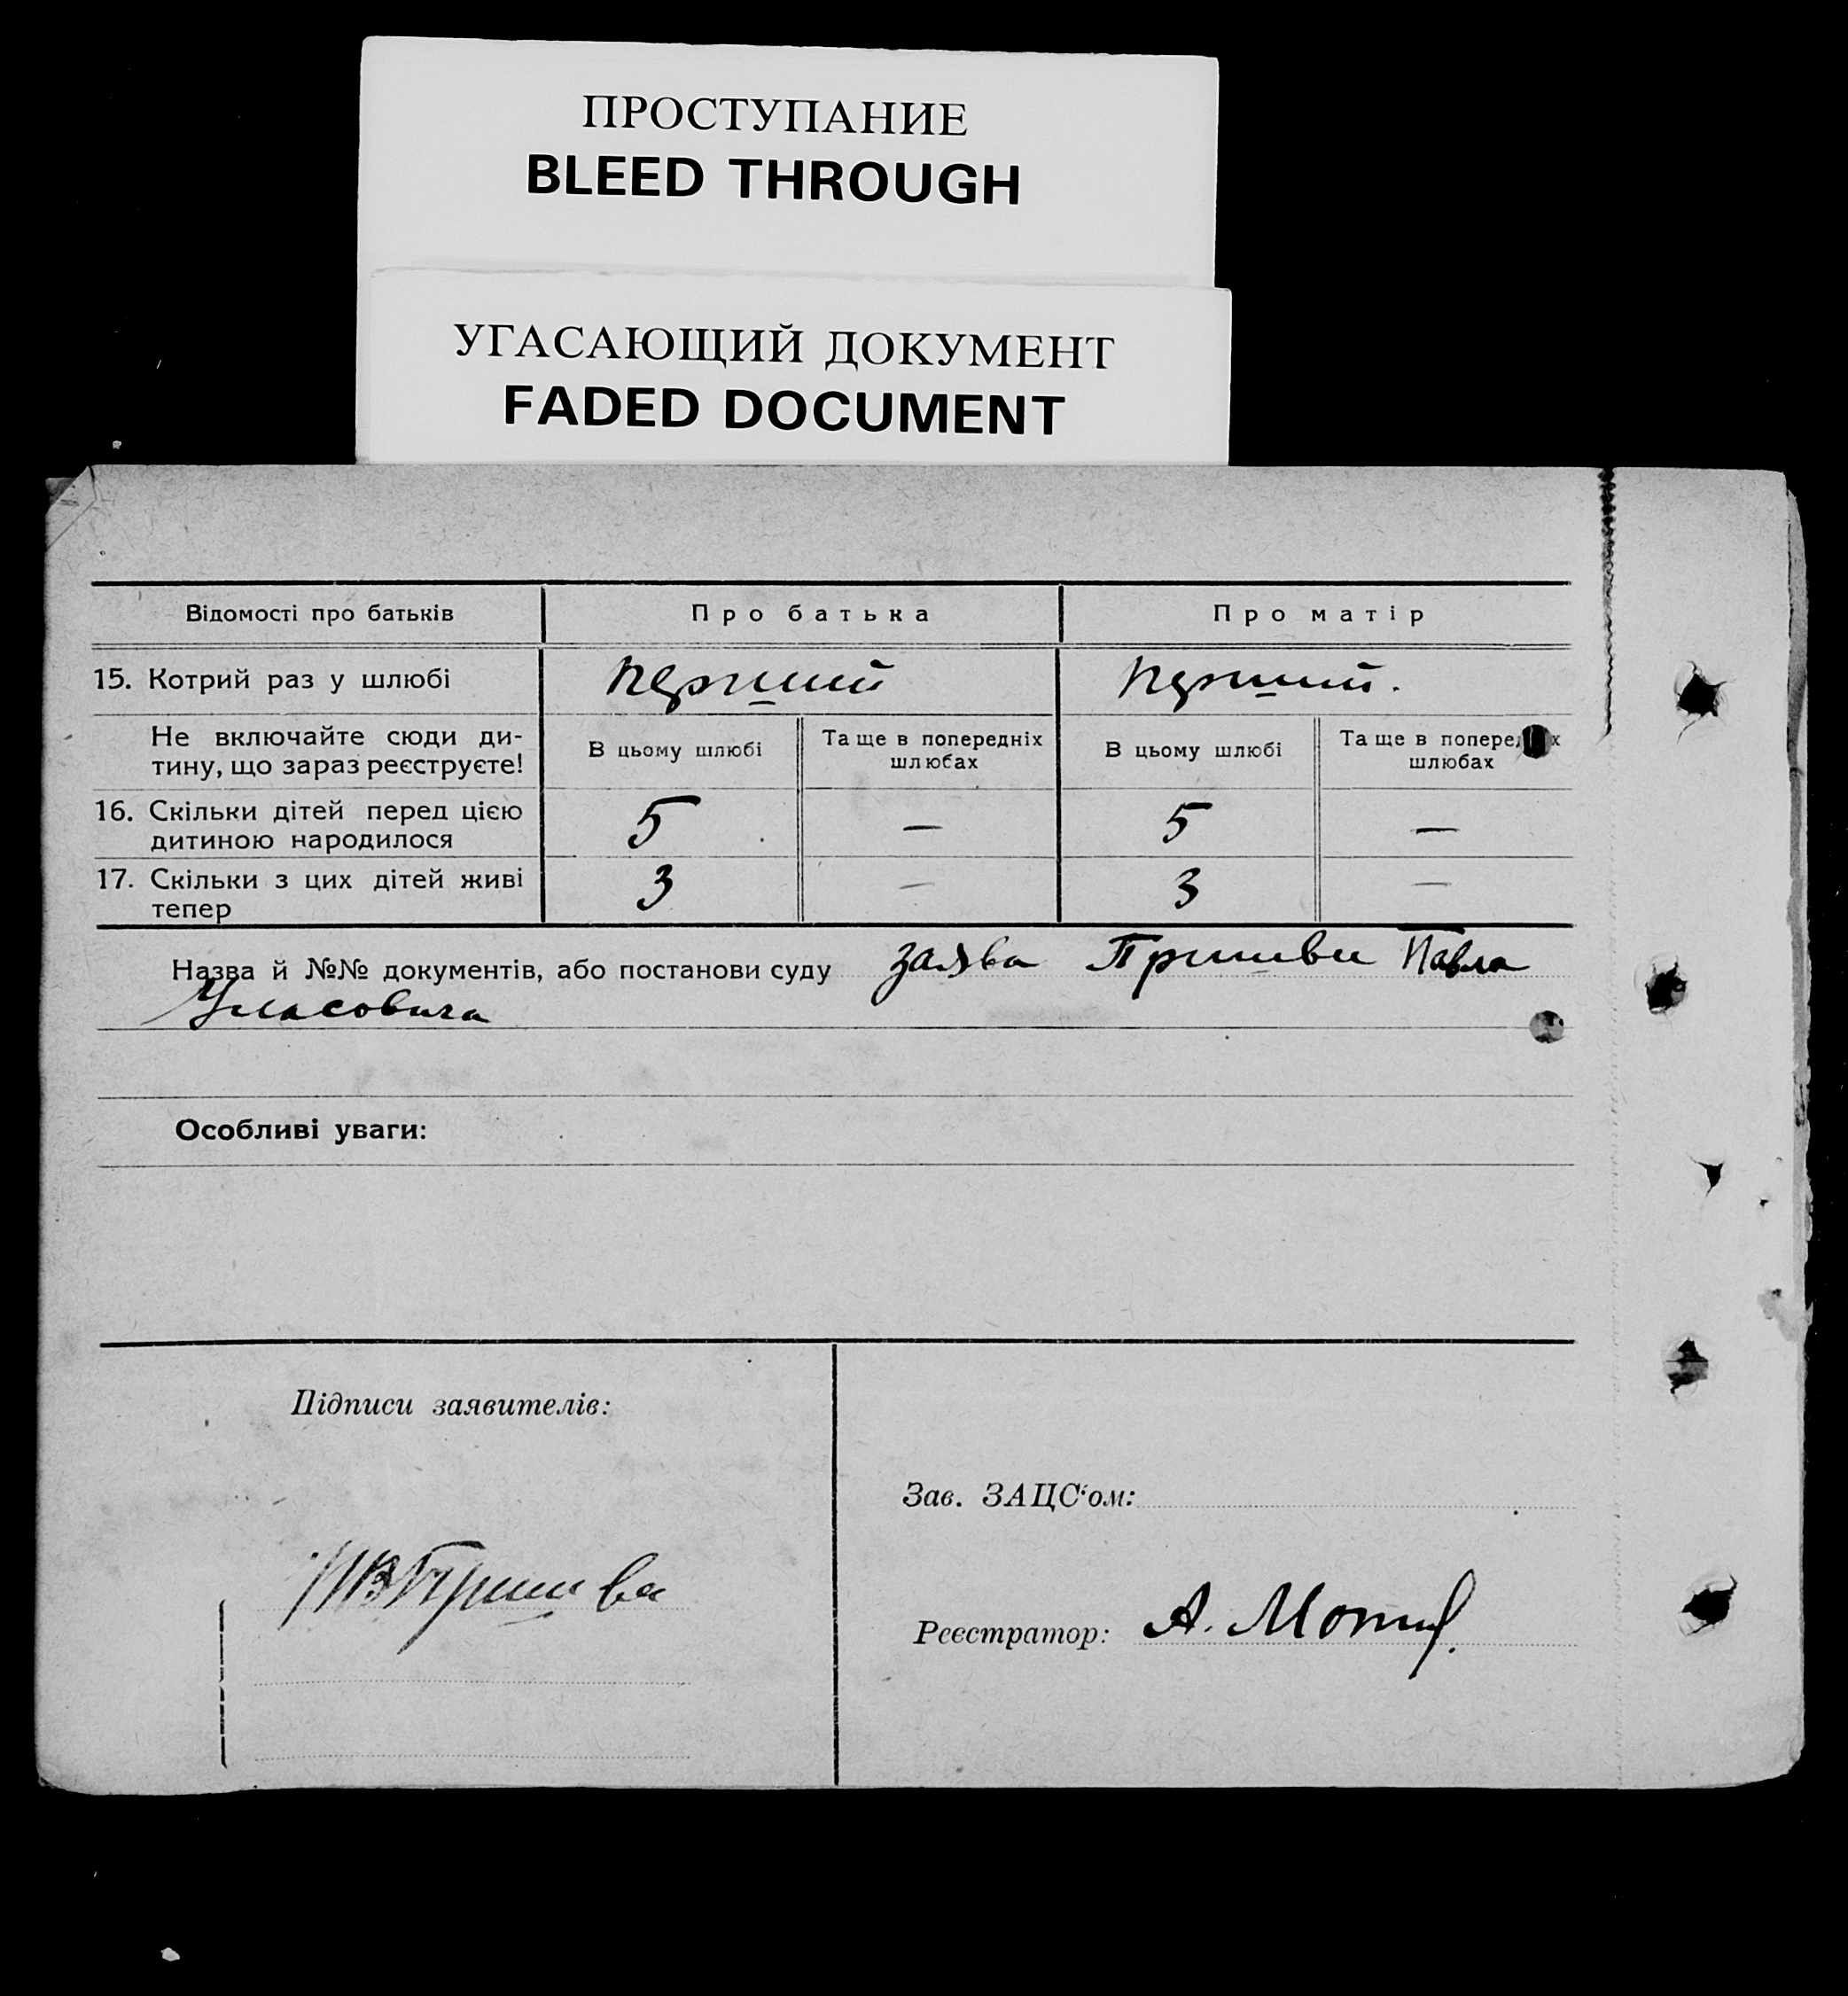 ПРОСТУПАНИЕ
BLEED THROUGH
УГАСАЮЩИЙ ДОКУМЕНТ
FADED DOCUMENT
Відомості про батьків
Про батька
Про матір
15. Котрий раз у шлюбі
перший
перший.
Не включайте сюди ди-
тину, що зараз реєструєте!
В цьому шлюбі
Та ще в попередніх
шлюбах
В цьому шлюбі
Та ще в попере
х
шлюбах
16. Скільки дітей перед цією
дитиною народилося
5
—
5
—
17. Скільки з цих дітей живі
тепер
3
—
3
—
Назва й №№ документів, або постанови суду заява Пришви Павла
Уласовича
Особливі уваги:
Підписи заявителів:
Зав. ЗАЦС‘ом:
Реєстратор: А.